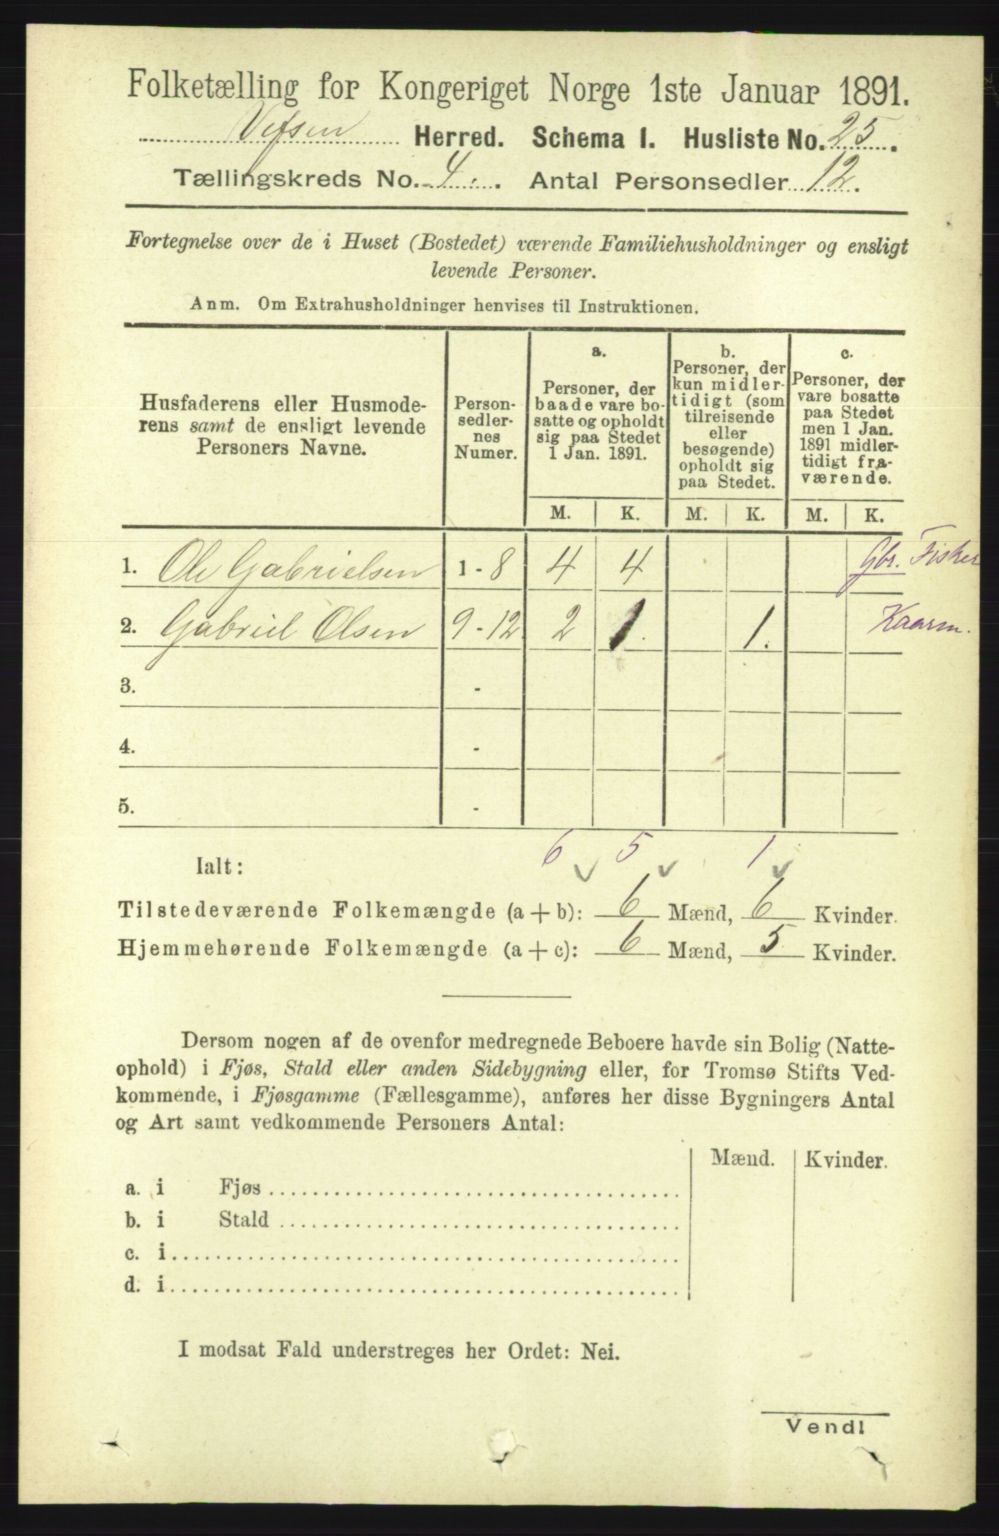 Folketælling for Kongeriget Norge 1ste Januar 1891.
Vefsen Herred. Schema I. Husliste No. 25.
Tællingskreds No. 4. Antal Personsedler 12.
Fortegnelse over de i Huset (Bostedet) værende Familiehusholdninger og ensligt
levende Personer.
Anm. Om Extrahusholdninger henvises til Instruktionen.
Husfaderens eller Husmode-
rens samt de ensligt levende
Personers Navne.
Person-
sedler-
nes
Numer.
a.
Personer, der
baade vare bo-
satte og opholdt
sig paa Stedet
1 Jan. 1891.
b.
Personer, der
kun midler-
tidigt (som
tilreisende
eller
besøgende)
opholdt sig
paa Stedet.
c.
Personer, der
vare bosatte
paa Stedet
men 1 Jan.
1891 midler-
tidigt fra-
værende.
M. K. M. K. M. K.
1. Ole Gabrielsen 1 - 8 4 4 Gbr. Fisker
2. Gabriel Olsen 9 - 12 2 1. 1. Kaarm.
3. -
4. -
5. -
Ialt: 6 5 1
Tilstedeværende Folkemængde (a + b): 6 Mænd, 6 Kvinder.
Hjemmehørende Folkemængde (a + c): 6 Mænd, 5 Kvinder.
Dersom nogen af de ovenfor medregnede Beboere havde sin Bolig (Natte-
ophold) i Fjøs, Stald eller anden Sidebygning eller, for Tromsø Stifts Ved-
kommende, i Fjøsgamme (Fællesgamme), anføres her disse Bygningers Antal
og Art samt vedkommende Personers Antal:
Mænd. Kvinder.
a. i Fjøs
b. i Stald
c. i
d. i
I modsat Fald understreges her Ordet: Nei.
Vendl